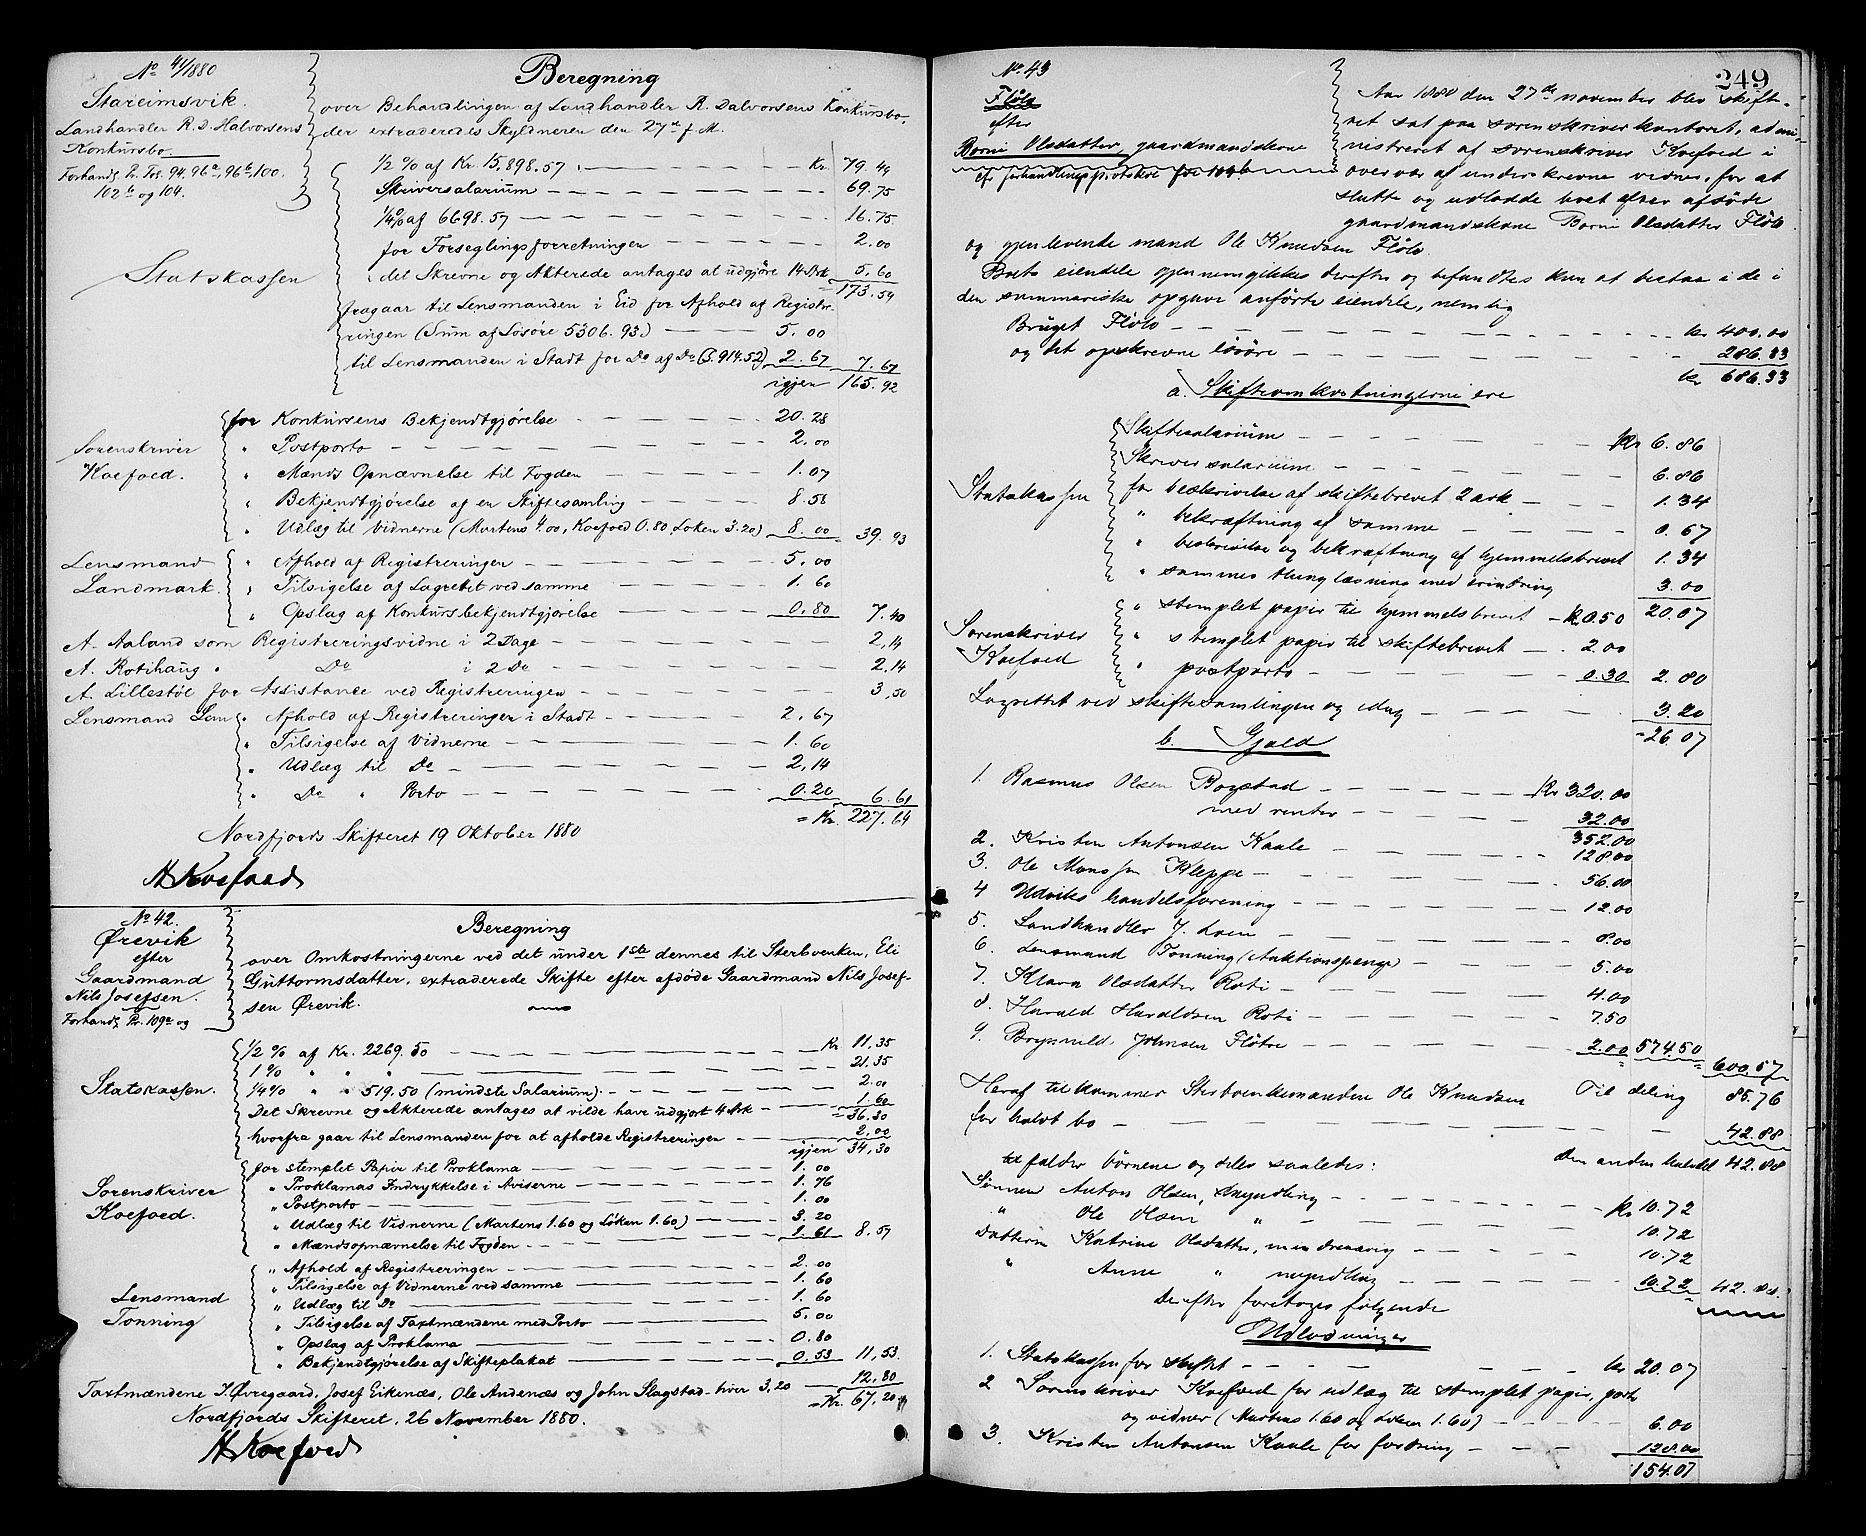 No 41/1880
Stareimsvik.
Landhandler R. D. Halvorsens
Konkursbo.
Forhandl. Pr. Fol. 94, 96a, 96b, 100,
102b og 104.
Beregning
over Behandlingen af Landhandler R. Dalvorsens Konkursbo,
der extraderedes Skyldneren den 27de f. M.
Statskassen
1/2 % af Kr. 15,898.57 Kr. 79.49
Skriversalarium 69.75
1/4 % af 6698.57 16.75
for Forseglingsforretningen 2.00
det Skrevne og Akterede antages at udgjøre 14 Ark 5.60
= 173.59
fragaar til Lensmanden i Eid for Afhold af Registre-
ringen (Sum af Løsøre 5306.93.) 5.00
til Lensmanden i Stadt for Do af Do (S. 914.52) 2.67 7.67
igjen 165.92
Sorenskriver
Koefoed.
for Konkursens Bekjendtgjørelse 20.28
" Postporto 2.00
" Mænds Opnævnelse til Fogden 1.07
" Bekjendtgjørelse af en Skiftesamling 8.58
" Udlæg til Vidnerne (Martens 4.00, Koefoed 0.80, Løken 3.20) 8.00 39.93
Lensmand
Landmark.
" Afhold af Registreringen 5.00
" Tilsigelse af Lagretet ved samme 1.60
" Opslag af Konkursbekjendtgjørelse 0.80 7.40
A. Aaland som Registreringsvidne i 2 Dage 2.14
A. Rotihaug " Do i 2 Do 2.14
A. Lillestøl for Assistance ved Registreringen 3.50
Lensmand Lem " Afhold af Registreringen i Stadt 2.67
" Tilsigelse af Vidnerne 1.60
" Udlæg til Do 2.14
" Do " Porto 0.20 6.61
= Kr. 227.64
Nordfjords Skifteret 19 Oktober 1880
A Koefoed
No 42.
Ørevik
efter
Gaardmand
Nils Josefsen.
Forhandl. Pr. 109a og
Beregning
over Omkostningerne ved det under 1ste dennes til Sterbvenken, Eli
Guttormsdatter, extraderede Skifte efter afdøde Gaardmand Nils Josef-
sen Ørevik.
Statskassen.
1/2 % af Kr. 2269.50 Kr 11.35
1 % " " " 21.35
1/4 % " " 519.50 (mindste Salarium) 2.00
Det Skrevne og Akterede antages at vilde have udgjort 4 Ark 1.60
= 36.30
hvorfra gaar til Lensmanden for at afholde Registreringen 2.00
igjen 34.30
Sorenskriver
Koefoed.
for stemplet Papir til Proklama 1.00
" Proklamas Indrykkelse i Aviserne 1.76
" Postporto 1.00
" Udlæg til Vidnerne (Martens 1.60 og Løken 1.60) 3.20
" Mændsopnævnelse til Fogden 1.61 8.57
Lensmand
Tonning
" Afhold af Registreringen 2.00
" Tilsigelse af Vidnerne ved samme 1.60
" Udlæg til Do 1.60
" Tilsigelse af Taxtmændene med Porto 5.00
" Opslag af Proklama 0.80
" Bekjendtgjørelse af Skifteplakat 0.53 11.53
Taxtmændene I. Øvregaard, Josef Eikenæs, Ole Andenæs og John Slagstad hver 3,20 12.80
= Kr. 67.20
Nordfjords Skifteret, 26 November 1880.
A Koefoed
249
No. 43
Fløte
efter
Borni Olsdatter, gaardmandskone
cfr forhandlingsprotokol fol 109b
Aar 1880 den 27de november blev skifte-
ret sat paa sorenskriverkontoret, admi-
nistreret af sorenskriver Koefoed i
overvær af underskrevne vidner, for at
slutte og udlodde boet efter afdøde
gaardmandskone Borni Olsdatter Fløte
og gjenlevende mand Ole Knudsen Fløte.
Boets eiendele gjennemgikkes derefter og befandtes kun at bestaa i de i
den summariske opgave anførte eiendele, nemlig
Bruget Fløte kr 400.00
og det opskrevne løsøre 286.33
kr 686.33
a. Skifteomkostningerne ere
Statskassen
Skiftesalarium Kr 6.86
Skriversalarium 6.86
for beskrivelse af skiftebrevet 2 ark 1.34
" bekræftning af samme 0.67
" beskrivelse og bekræftning af hjemmelsbrevet 1.34
" sammes thinglæsning med erindring 3.00
20.07
Sorenskriver
Koefoed
" stemplet papir til hjemmelsbrevet Kr 0.50
" stemplet papir til skiftebrevet 2.00
" postporto 0.30 2.80
Lagrettet ved skiftesamlingen og idag 3.20
= 26.07
b. Gjæld
1. Rasmus Olsen Bogstad Kr 320.00
med renter 32.00
352.00
2. Kristen Antonsen Kaale 128.00
3. Ole Monssen Kleppe 56.00
4 Udviks handelsforening 12.00
5. Landhandler J. Loen 8.00
6. Lensmand Tonning (Auktionspenge) 5.00
7. Klara Olsdatter Roti 4.00
8. Harald Haraldsen Roti 7.50
9. Brynnild Johnsen Fløtre 2.00 574.50
600.57
Til deling 85.76
Heraf tilkommer Sterbvenkemanden Ole Knudsen
for halvt bo 42.88
Den anden halvdel 42.88
tilfalder børnene og deles saaledes:
Sønnen Anton Olsen, myndling Kr 10.72
" Ole Olsen " 10.72
Datteren Katrine Olsdatter, mindreaarig 10.72
" Anne " myndling 10.72 42.88
Derefter foretoges følgende
Udlodninger
1. Statskassen for skiftet kr 20.07
2 Sorenskriver Koefoed for udlæg til stemplet papir, porto
og vidner (Martens 1.60 og Løken 1.60) 6.00
3. Kristen Antonsen Kaale for fordring 128.00
154.07